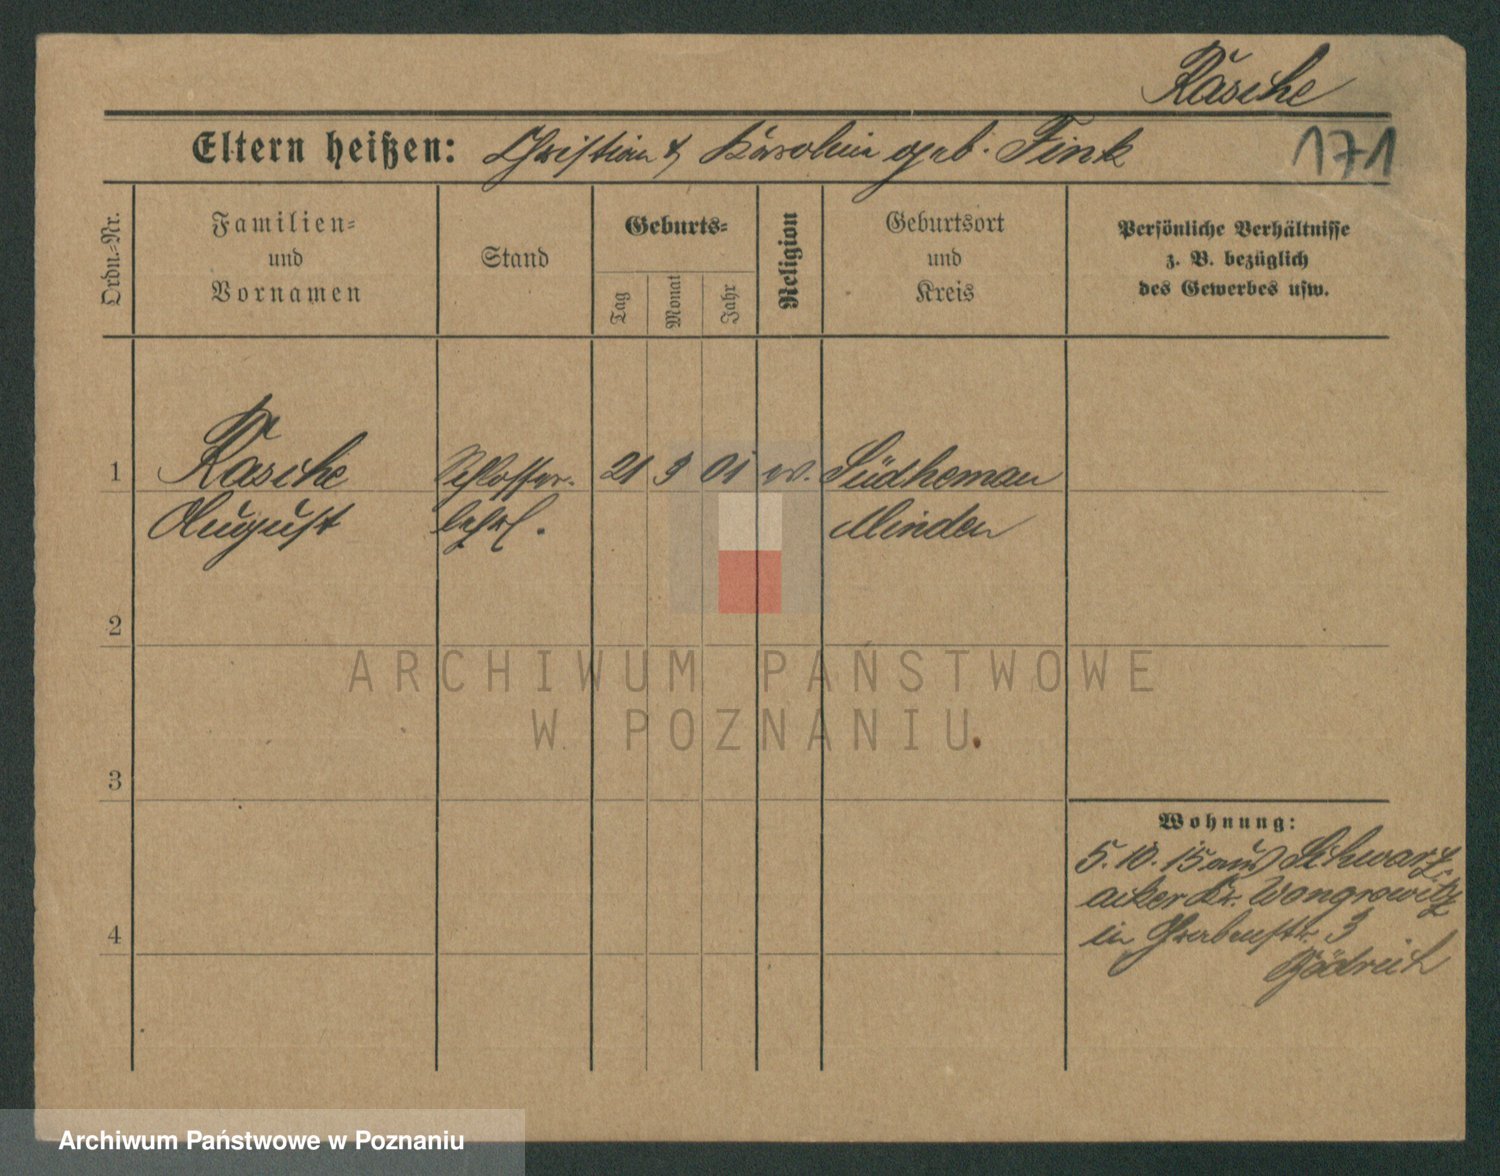 Rasche
Eltern heißen: Christian & Karoline geb. Fink
171
Ordn.=Nr.
Familien=
und
Vornamen
Stand
Geburts=
Tag
Monat
Jahr
Religion
Geburtsort
und
Kreis
Persönliche Verhältnisse
z. B. bezüglich
des Gewerbes usw.
1 Rasche Schlosser- 21 3 01 ev. Südheman
August lehrl. Minden
2
ARCHIWUM PAŃSTWOWE
W POZNANIU
3
Wohnung:
5. 10. 15 aus Schwarz-
acker Kr. Wongrowitz
4
in Grabenstr. 3
Archiwum Państwowe w Poznaniu